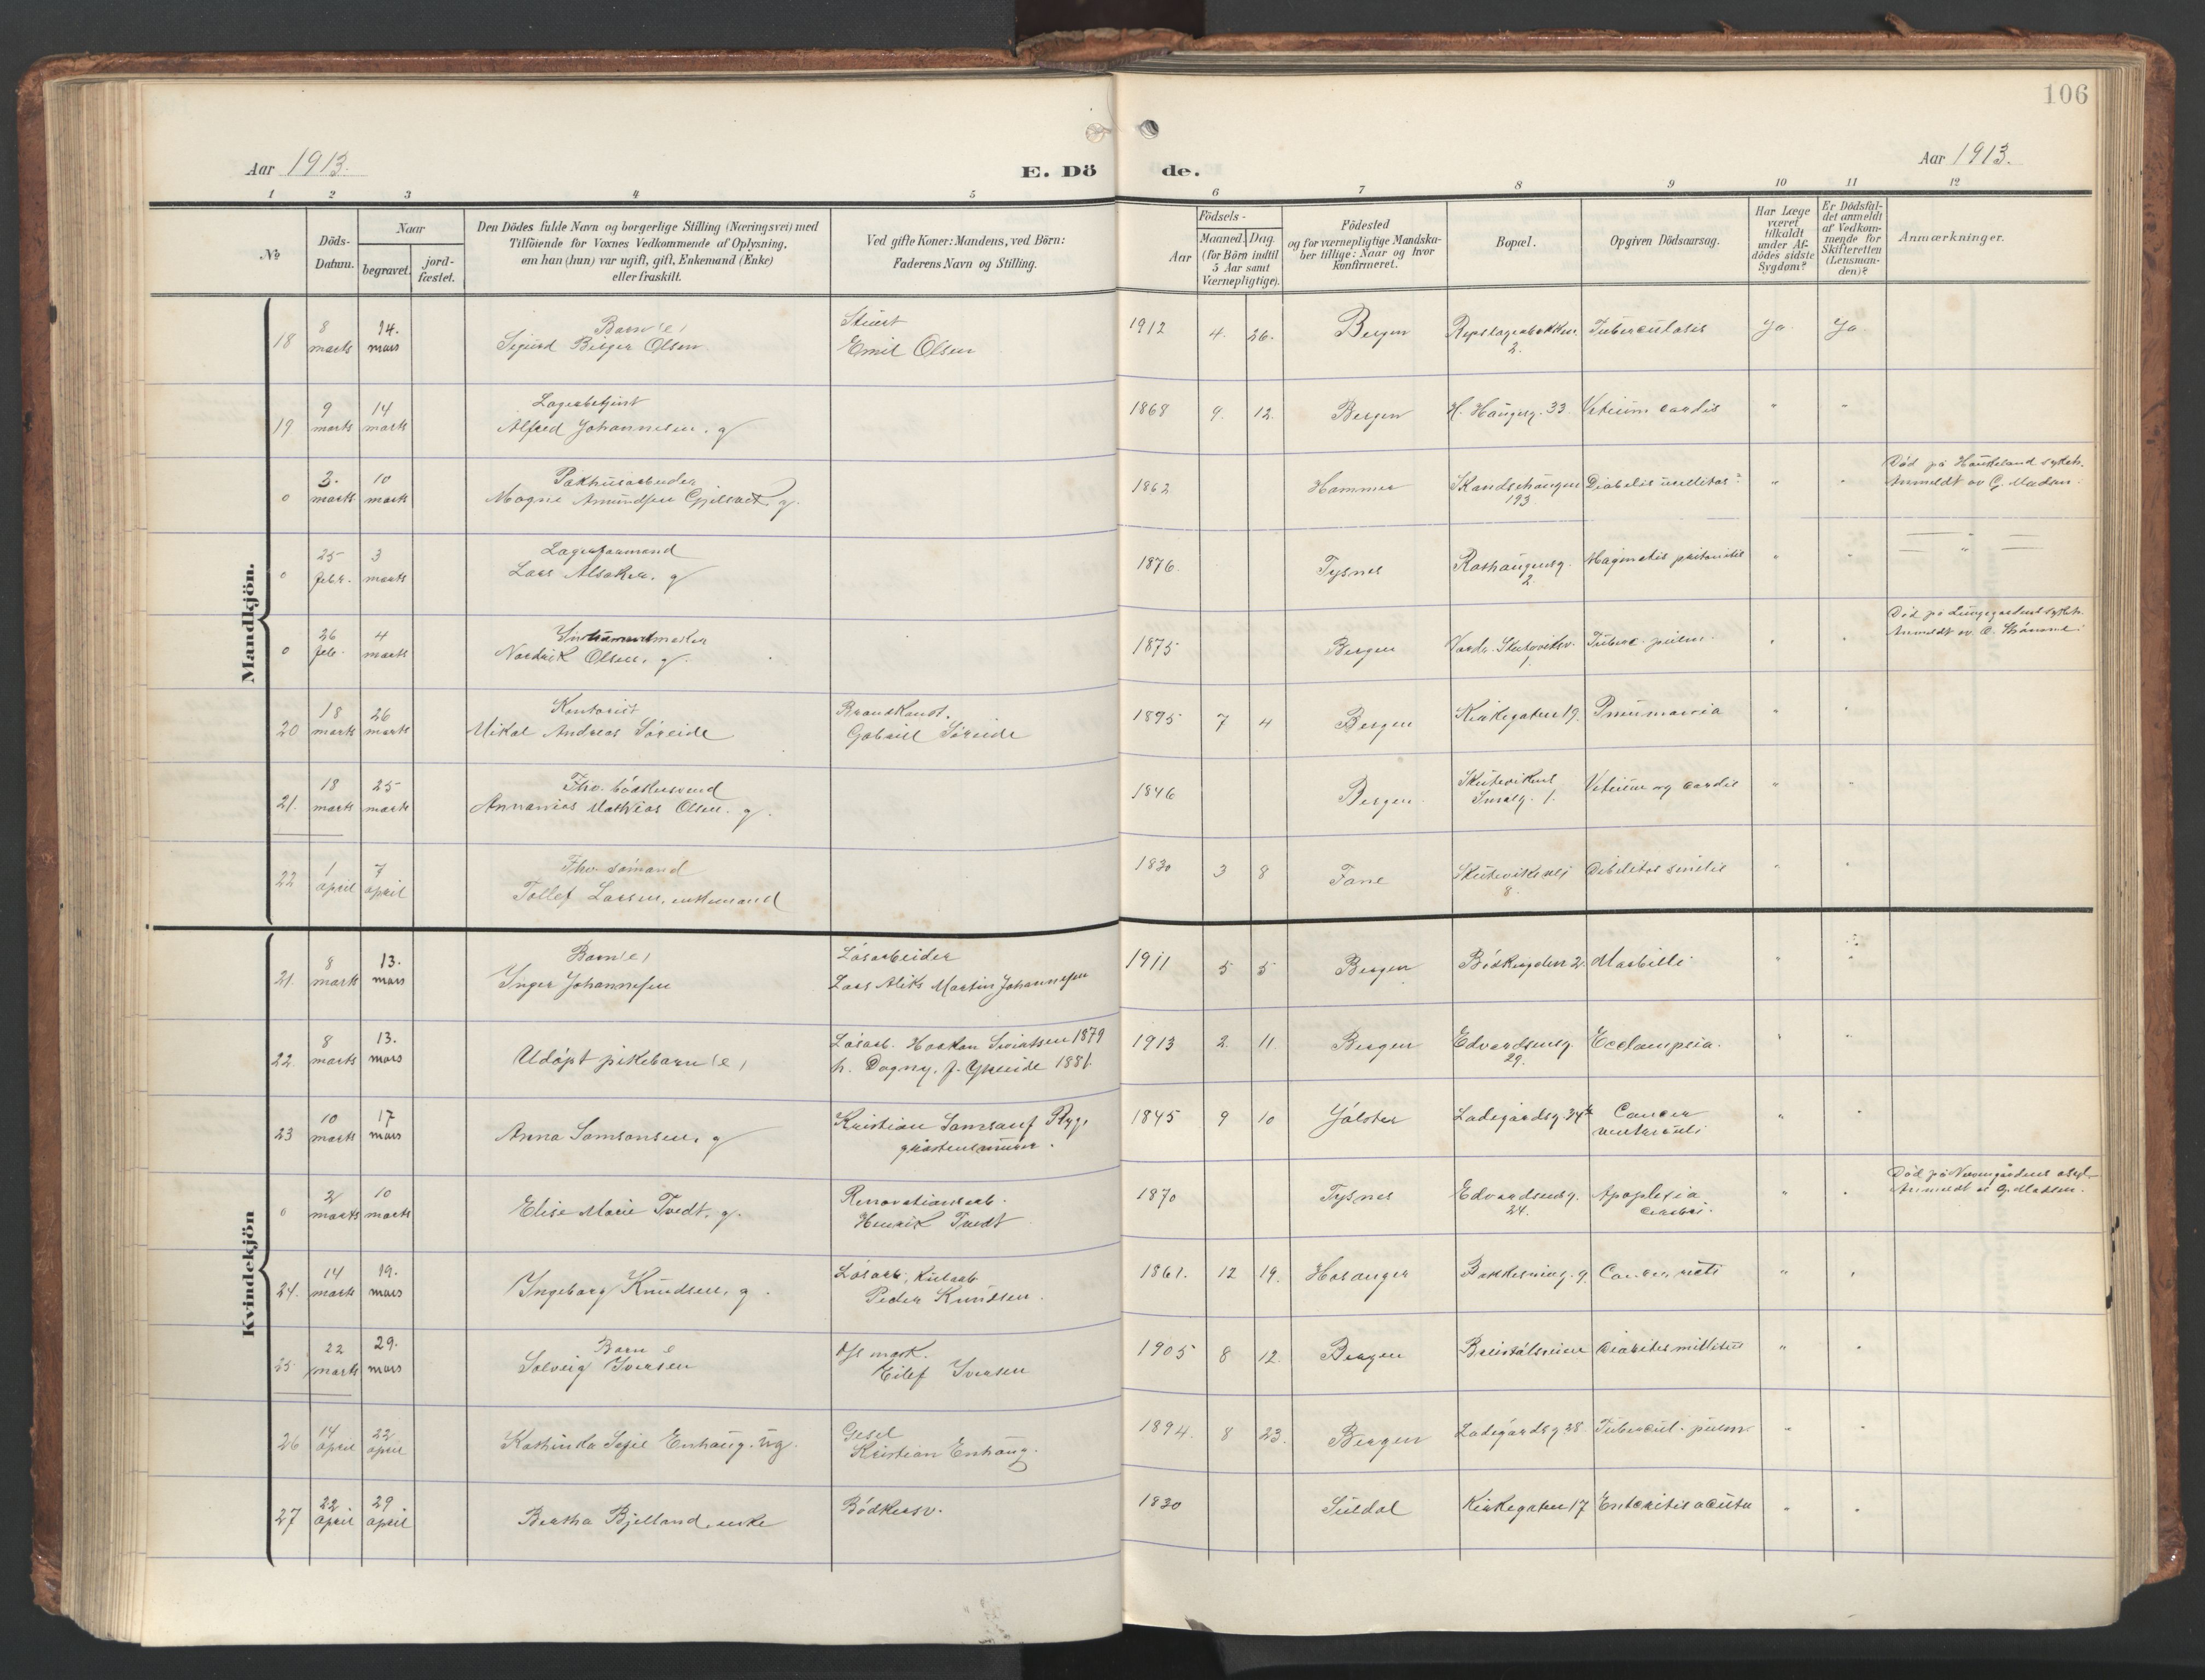 106
Aar 1913.
E. Dö
de.
Aar 1913.
1 2 3 4 5 6 7 8 9 10 11 12
No
Döds-Datum.
Naar
begravet.
jord-fæstet.
Den Dödes fulde Navn og borgerlige Stilling (Næringsvei) med
Tilföiende for Voxnes Vedkommende af Oplysning,
om han (hun) var ugift, gift, Enkemand (Enke)
eller fraskilt.
Ved gifte Koner: Mandens, ved Börn:
Faderens Navn og Stilling.
Födsels-
Aar
Maaned.
Dag.
(for Börn indtil
5 Aar samt
Værnepligtige).
Födested
og for værnepligtige Mandska-
ber tillige: Naar og hvor
konfirmeret.
Bopæl.
Opgiven Dödsaarsag.
Har Læge
været
tilkaldt
under Af-
dödes sidste
Sygdom?
Er Dödsfal-
det anmeldt
af Vedkom-
mende for
Skifteretten
(Lensman-
den)?
Anmærkninger.
Mandkjön.
18 8 marts 14. mars Barn (e)
Sigurd Birger Olsen Stuert
Emil Olsen 1912 4. 26. Bergen Repslagerbakken 2. Tuberculosis Ja. Ja.
19 9 marts 14 marts Lagerbetjent
Alfred Johannesen. g 1868 9. 12. Bergen H. Haugesg. 33. Vitium cordis " "
0 3. marts 10 marts Pakhusarbeider
Mogne Amundsen Gjelsvik g. 1862 Hammer Skandsehaugen 193. " " Död på Haukeland sykeh.
Anmeldt av G. Madsen.
0 25 febr. 3 marts Lagerformand
Lars Alsaker. g 1876. Tysnes Rothaugensg. 2. " " — " —
0 26 feb. 4 marts Instrumentmaker
Nordrik Olsen. g. 1875 Bergen Vardr. Skutevikov. 1. Tuberc. pulm. " " Död på Lungegaardens sykeh.
Anmeldt av C.
20 18 marts 26 marts Kontorist
Mikal Andreas Søreide Brandkonst.
Gabriel Søreide 1895 7 4 Bergen Kirkegaten 19. Pneumonia " "
21. 18 marts 25 marts Fhv. bödkersvend
Annanias Mathias Olsen. g. 1846 Bergen. Skutevikens Smalg. 1. Vitium org cordis " "
22 1 april 7 april Fhv. sömand
Tollef Larsen, enkemand 1830 3 8 Fane Skuteviksvei 8. Debilitas senilis " "
Kvindekjön
21. 8 mark 13. mars Barn (e)
Inger Johannesen Lösarbeider
Lars Aleks Martin Johannesen 1911 5 5 Bergen Bödkergden 2. Morbilli " "
22. 8 marts 13. mars Udöpt pikebarn (e) Lösarb. Haakon Sivertsen 1879
h. Dagny. f. 1881. 1913 2. 11. Bergen Edvardsensg. 29. Ecclampsia. " "
23 10 marts 17 mars Anna Samsonsen, g Kristian 1845 9 10 Jölster Ladegårdsg. 34 Cancer ventriculi " "
0 2 marts 10 marts Elise Marie Tvedt. g. Renovationsarb.
Henrik Tvedt 1870 Tysnes Edvardsensg. 24. Apoplexia cerebri. " " Död på asyl
Anmeldt av G. Madsen.
24. 14 marts 19. mars Ingeborg Knudsen, g. Lösarb.
Peder Knudsen. 1861. 12 19. Hosanger Cancer " "
25 22 marts 29. mars Barn e
Solveig Iversen
Eilef Iversen 1905 8 12. Bergen Breistölsveien Diabetes mellitus " "
26 14 april 22 april Kathinka Sofie Enhaug. ug. Gesel
Kristian Enhaug. 1894. 8 23. Bergen Ladegårdsg 28. Tubercul. pulm. " "
27 22 april 29. april Bertha Bjelland. enke Bödkersv. 1830 Suldal Kirkegaten 17 Enteritis acuta " "